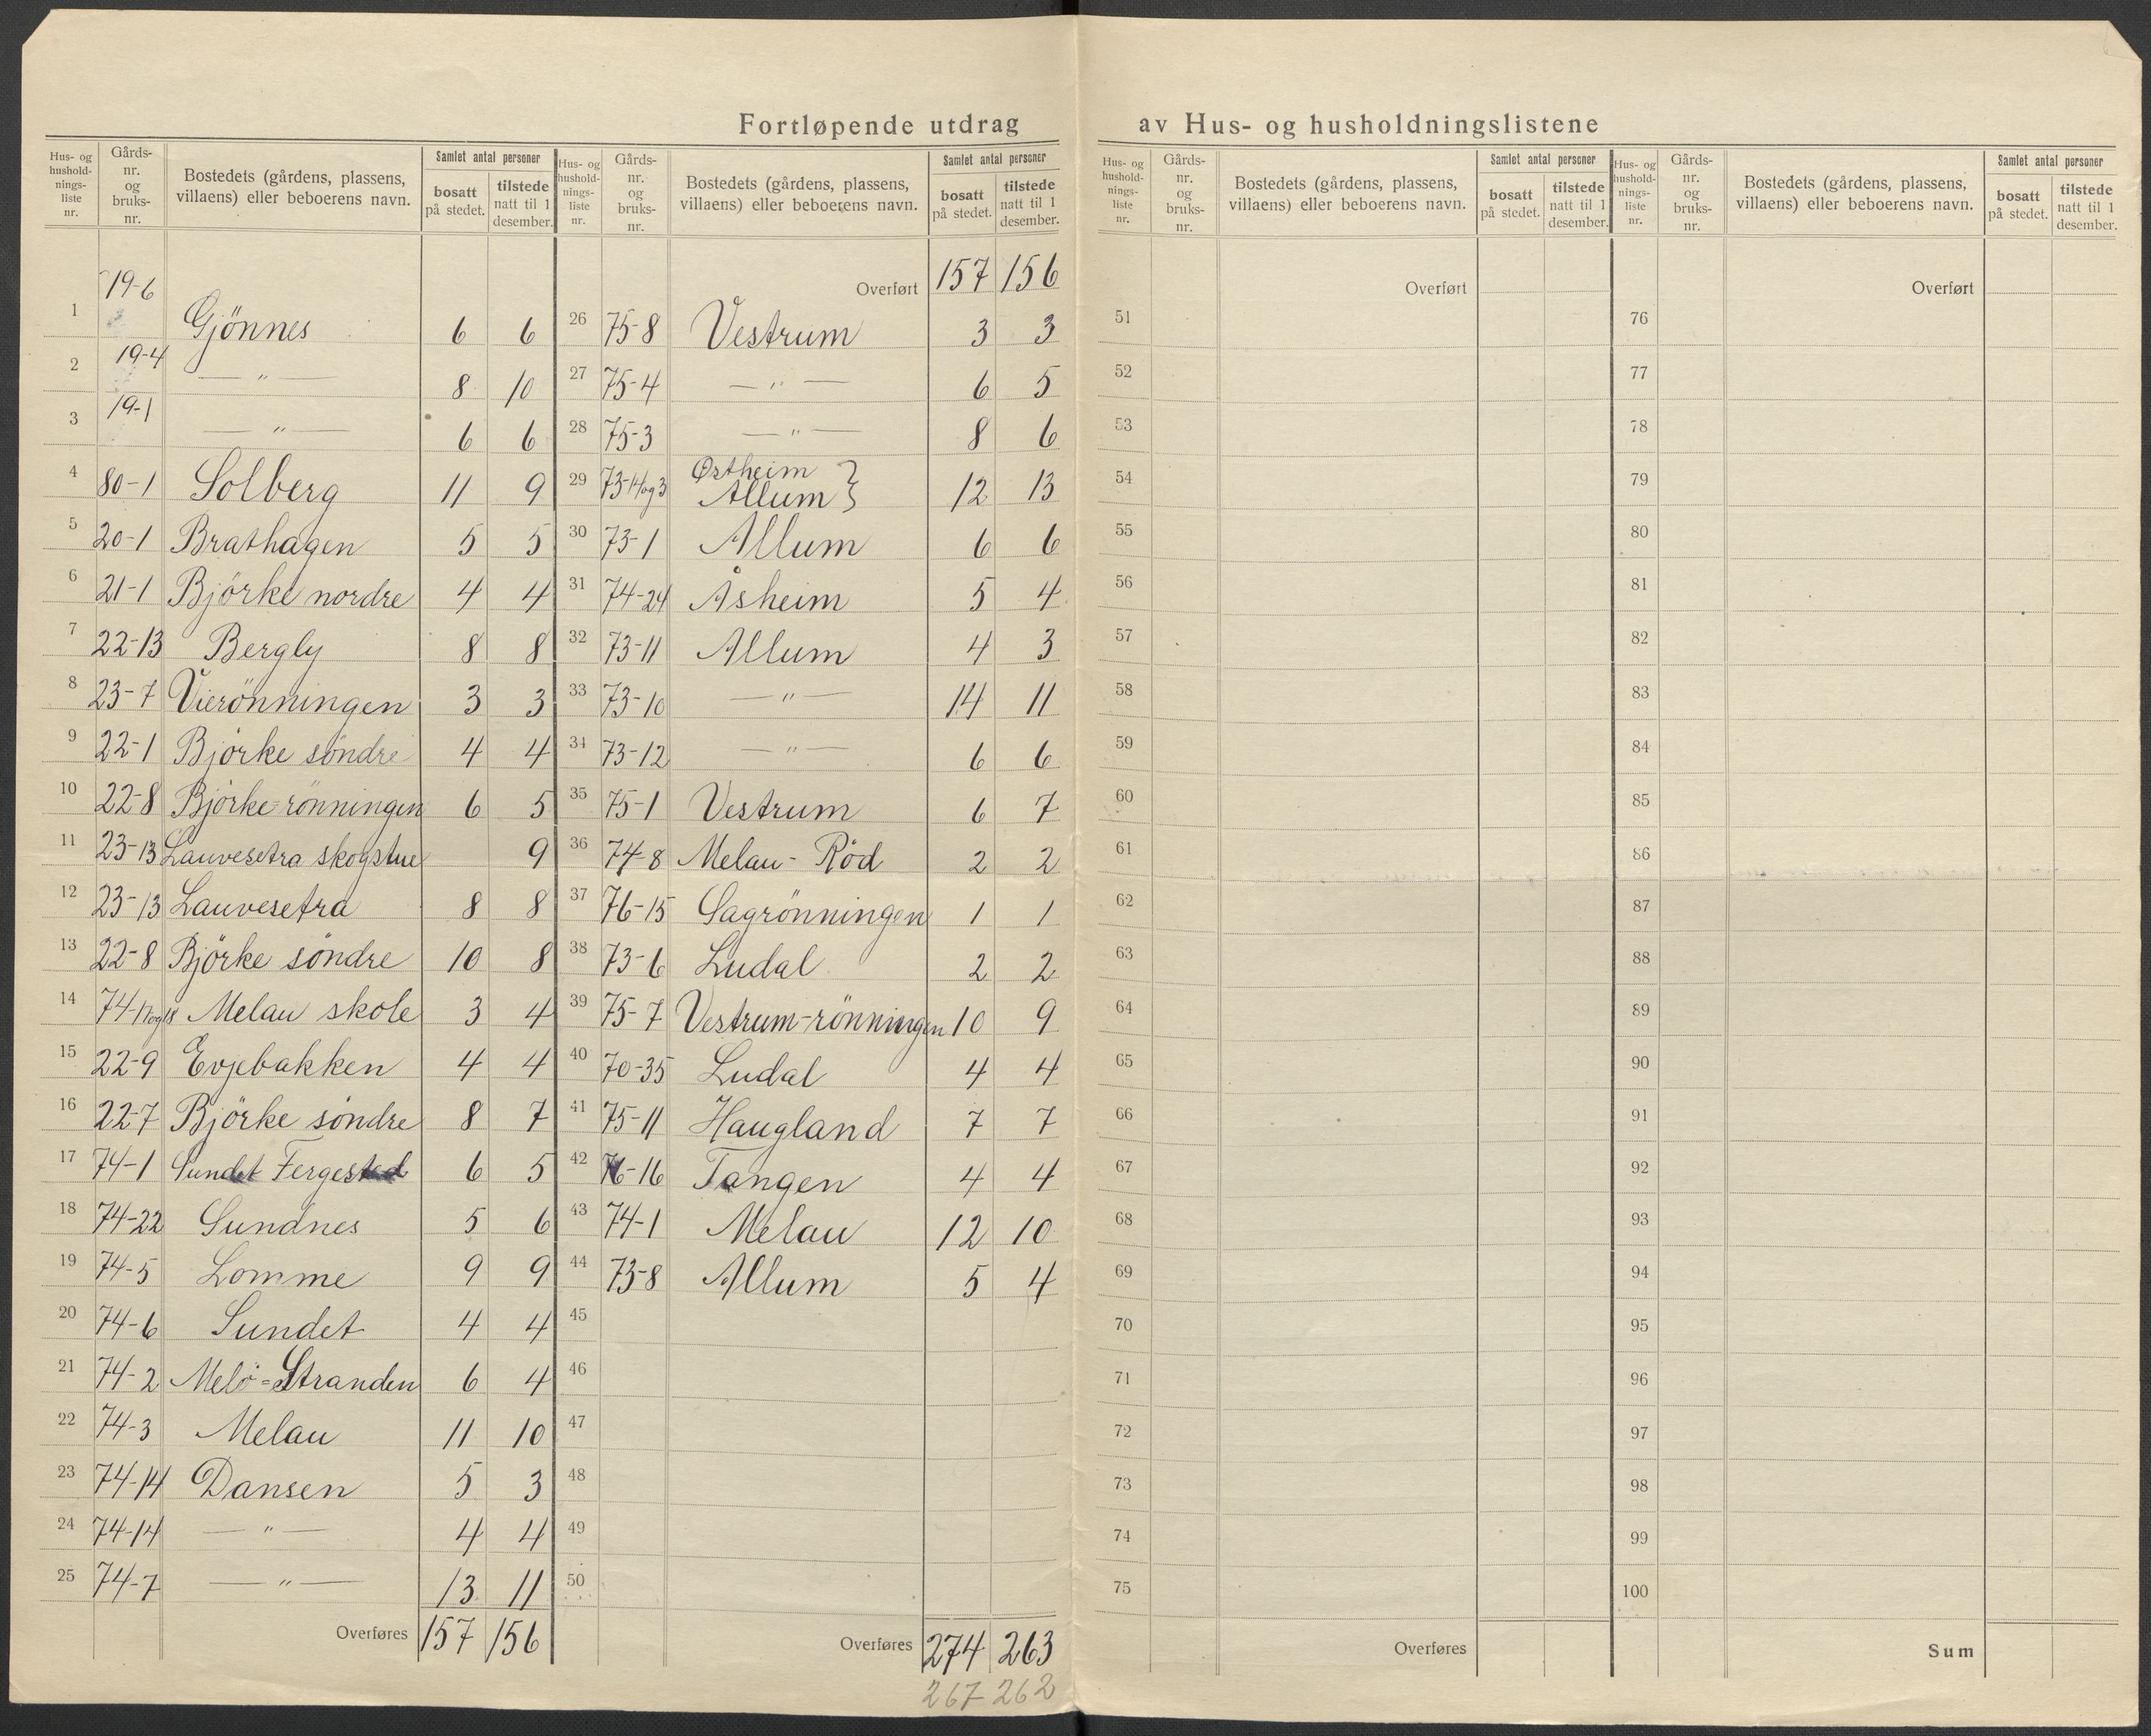 Fortløpende utdrag av Hus- og husholdningslistene
Hus- og hushold-nings-liste nr. Gårds-nr. og bruks-nr. Bostedets (gårdens, plassens, villaens) eller beboerens navn. Samlet antal personer bosatt på stedet. tilstede natt til 1 desember.
1 19-6 Gjönnes 6 6
2 19-4 —"— 8 10
3 19-1 —"— 6 6
4 80-1 Solberg 11 9
5 20-1 Brathagen 5 5
6 21-1 Björke nordre 4 4
7 22-13 Bergly 8 8
8 23-7 Vierönningen 3 3
9 22-1 Björke söndre 4 4
10 22-8 Björke-rönningen 6 5
11 23-13 Lauvesetra skogstue 9
12 23-13 Lauvesetra 8 8
13 22-8 Björke söndre 10 8
14 74-17og18 Melau skole 3 4
15 22-9 Evjebakken 4 4
16 22-7 Björke söndre 8 7
17 74-1 Sundet Fergested 6 5
18 74-22 Sundnes 5 6
19 74-5 Lomme 9 9
20 74-6 Sundet 4 4
21 74-2 Melö-Stranden 6 4
22 74-3 Melau 11 10
23 74-14 Dansen 5 3
24 74-14 —"— 4 4
25 74-7 —"— 13 11
Overføres 157 156
Hus- og hushold-nings-liste nr. Gårds-nr. og bruks-nr. Bostedets (gårdens, plassens, villaens) eller beboerens navn. Samlet antal personer bosatt på stedet. tilstede natt til 1 desember.
Overført 157 156
26 75-8 Vestrum 3 3
27 75-4 —"— 6 5
28 75-3 —"— 8 6
29 73-14og3 Østheim } Allum } 12 13
30 73-1 Allum 6 6
31 74-24 Åsheim 5 4
32 73-11 Allum 4 3
33 73-10 —"— 14 11
34 73-12 —"— 6 6
35 75-1 Vestrum 6 7
36 74-8 Melau-Röd 2 2
37 76-15 Sagrönningen 1 1
38 73-6 Ludal 2 2
39 75-7 Vestrum-rönningen 10 9
40 70-35 Ludal 4 4
41 75-11 Haugland 7 7
42 76-16 Tangen 4 4
43 74-1 Melau 12 10
44 73-8 Allum 5 4
45
46
47
48
49
50
Overføres 274 263
267 262
Hus- og hushold-nings-liste nr. Gårds-nr. og bruks-nr. Bostedets (gårdens, plassens, villaens) eller beboerens navn. Samlet antal personer bosatt på stedet. tilstede natt til 1 desember.
Overført
51
52
53
54
55
56
57
58
59
60
61
62
63
64
65
66
67
68
69
70
71
72
73
74
75
Overføres
Hus- og hushold-nings-liste nr. Gårds-nr. og bruks-nr. Bostedets (gårdens, plassens, villaens) eller beboerens navn. Samlet antal personer bosatt på stedet. tilstede natt til 1 desember.
Overført
76
77
78
79
80
81
82
83
84
85
86
87
88
89
90
91
92
93
94
95
96
97
98
99
100
Sum